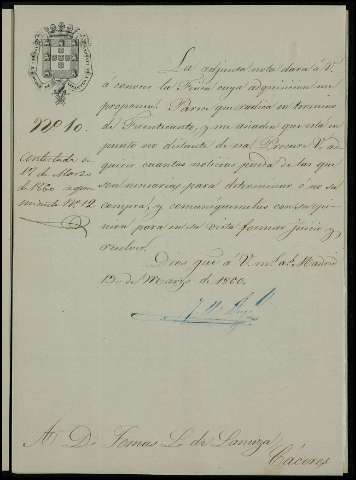 La adjunta nota dara á V.
á conocer la Finca cuya adquisicion me
proponen. Parece que radica en termino
de Fuentecanto, y me añaden que está en
punto no distante de esa. Procure V. ad-
quirir cuantas noticias pueda de las que
sean necesarias para determinar ó no su
compra, y comuniquemelas con su opi-
nion para en su vista formar juicio y
resolver.
Dios gue á V. m. a.s Madrid
13 de Marzo de 1860.
Nº 10.
Contestada en
17 de Marzo
de 1860 segun
minuta Nº 12
A D. Tomas L. de Lanuza,
Cáceres